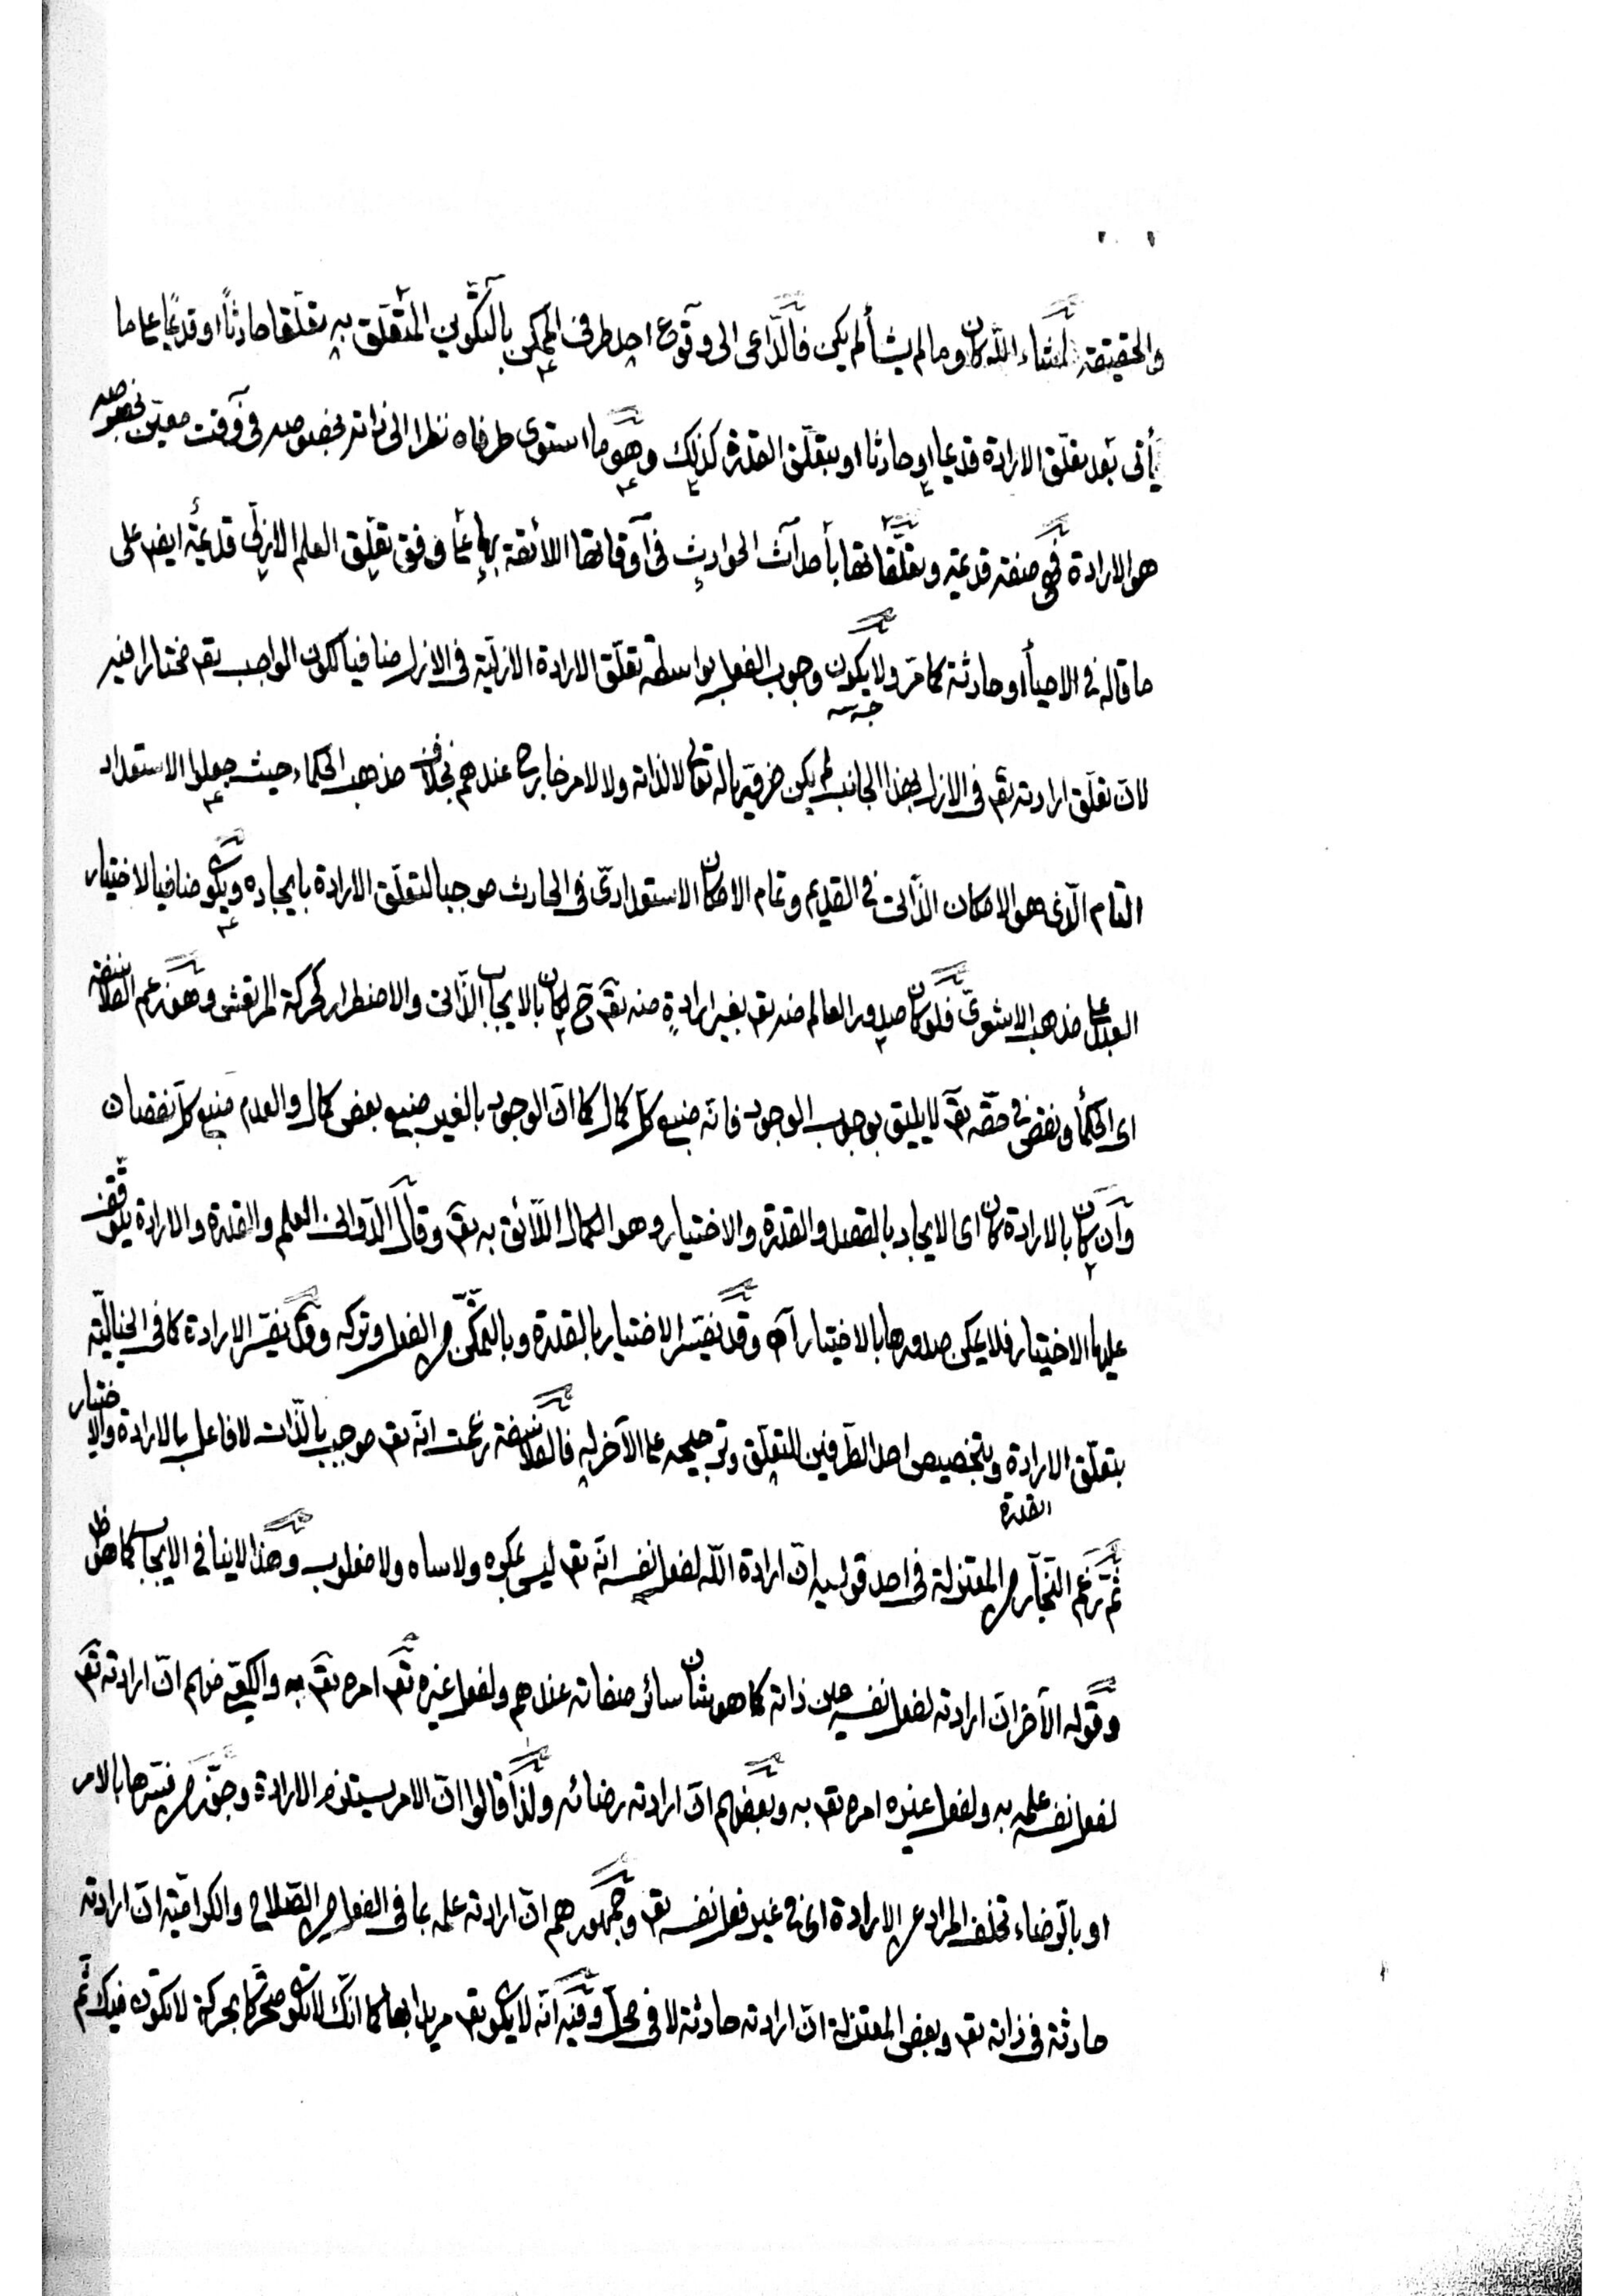 والحقيقة لمشاء الله كان وما لم يشأ لم يكن فالداعى الى وقوع احد طرفى الممكن بالتكوين المتعلق به تعلقا حادثا او قديما على ما
يأتى بعد تعلق الارادة قديما او حادثا او بتعلق القدرة كذلك وهو ما استوى طرفاه نظرا الى ذاته بخصوصه فى وقت معين بخصوصه
هو الارادة فهى صفة قديمة وتعلقاتها بأحداث الحوادث فى اوقاتها اللائقة بها على وفق تعلق العلم الازلى قديمة ايضا على
ما قاله فى الاحيأ او حادثة كما مر ولا يكون وجوب الفعل بواسطة تعلق الارادة الازلية فى الازل منافيا لكون الواجب تعه مختارا فيه
لان تعلق ارادته تعه فى الازل بهذا الجانب لم يكن ضروريا له تعالى لا لذاته ولا لامر خارج عندهم بخلاف مذهب الحكماء حيث جعلوا الاستعداد
التام الذى هو الامكان الذاتى فى القديم وتمام الامكان الاستعدادى فى الحادث موجبا لتعلق الارادة بايجاده ويكون منافيا لاختيار
العبد على مذهب الاشعرى فلو كان صدور العالم منه تعه بغير ارادة منه تعه ح لكان بالايجاب الذاتى والاضطرار كحركة المرتعش وهو زعم الفلاسفة
اى الحكمأ ونقص فى حقه تعه لا يليق بوجوب الوجود فانه منبع كل كمال كما ان الوجود بالغير منبع بعض كمال والعدم منبع كل نقصان
وان كان بالارادة كان اى الايجاد بالقصد والقدرة والاختيار وهو الكمال اللائق به تعه وقال الدوانى العلم والقدرة والارادة يتوقف
عليها الاختيار فلا يمكن صدورها بالاختيار اه وقد يفسر الاختيار بالقدرة وبالتمكن من الفعل وتركه وقد يفسر الارادة كما فى الخيالية
بتعلق الارادة وبتخصيص احد الطرفين للتعلق وترجيحه على الآخر به فالفلاسفة زعمت انه تعه موجب بالذات لا فاعل بالارادة والاختيار
القدرة
ثم زعم النجار من المعتزلة فى احد قوليه ان ارادة الله لفعل نفسه انه تعه ليس بمكره ولا ساه ولا مغلوب وهذا لا ينافى الايجاب كما هو ظ
وقوله الآخر ان ارادته لفعل نفسه عين ذاته كما هو شان سائر صفاته عندهم ولفعل غيره تعه امره تعه به والكعبى منهم ان ارادته تعه
لفعل نفسه علمه به ولفعل غيره امره تعه به وبعضهم ان ارادته رضائه ولذا قالوا ان الامر يستلزم الارادة وجوز من فسرها بالامر
او بالرضاء تخلف المراد عن الارادة اى فى غير فعل نفسه تعه وجمهورهم ان ارادته علمه بما فى الفعل من الصلاح والكرامية ان ارادته
حادثة فى ذاته تعه وبعض المعتزلة ان ارادته حادثة لا فى محل وفيه انه لا يكون تعه مريدا بها كما انك لا تكون متحركا بحركة لا تكون فيك ثم